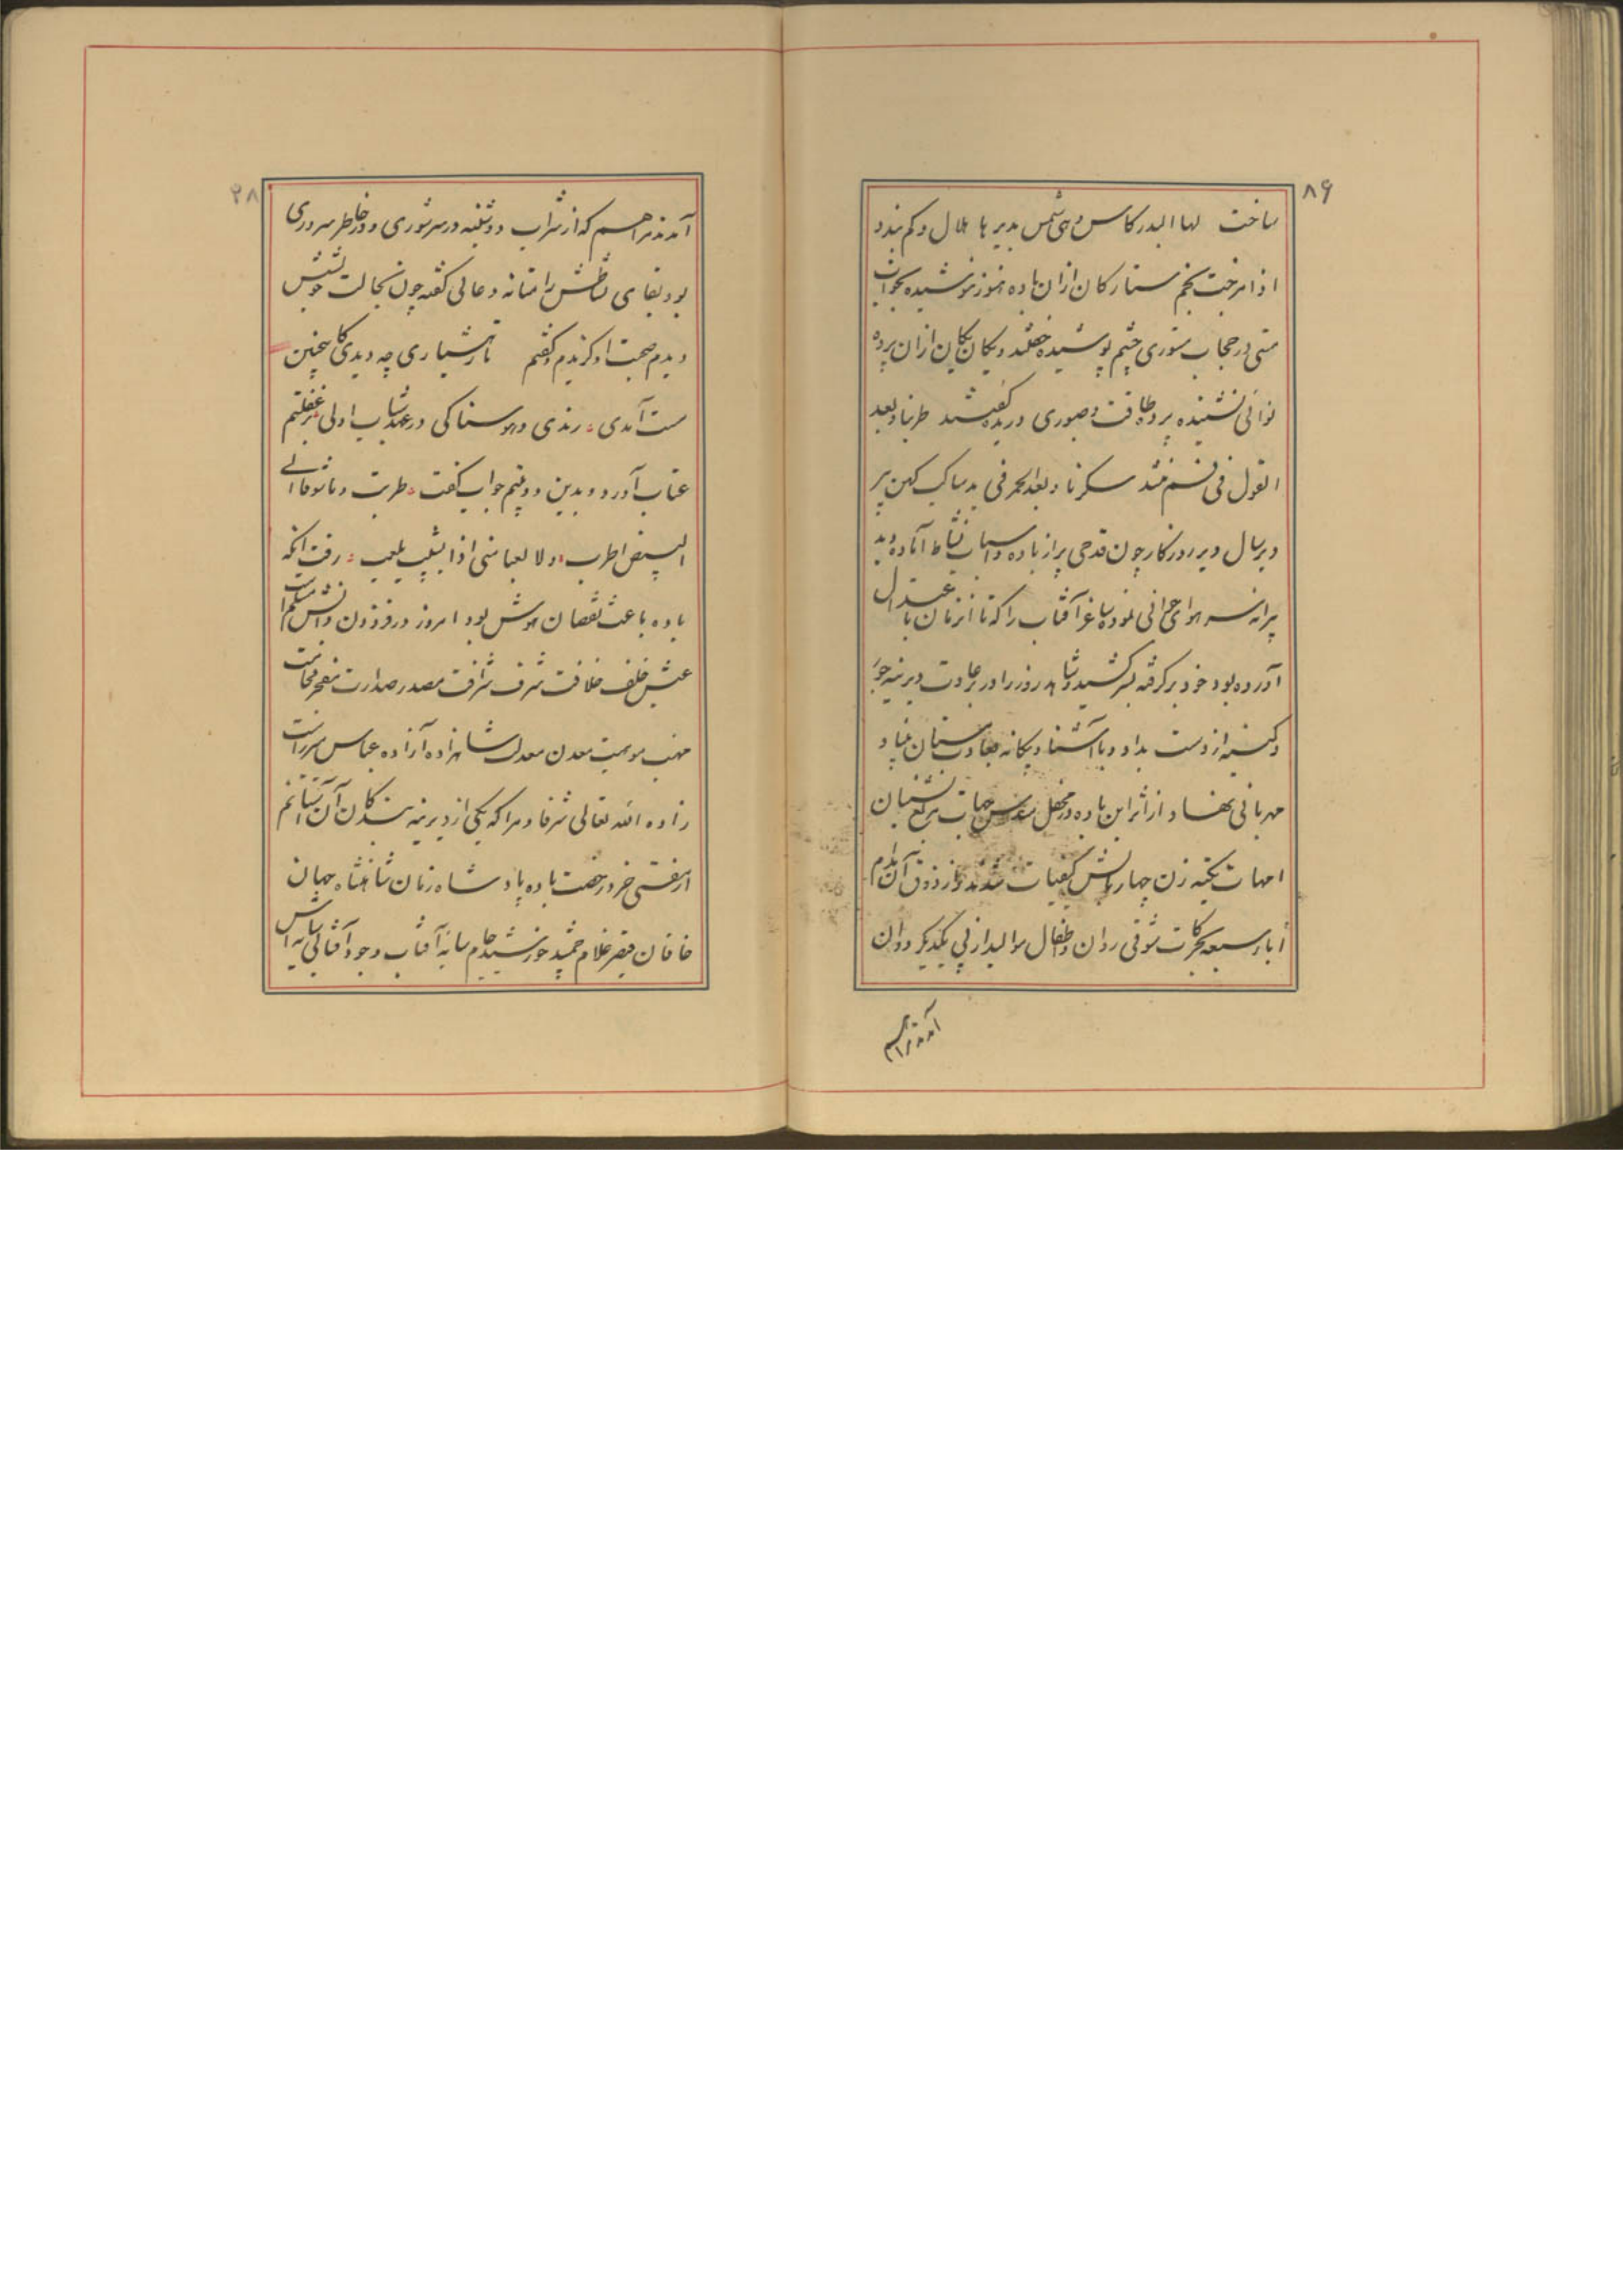 ۸۶
ساخت لها البدر کاس و هی شمس یدیرها هلال و کم یبدو
اذا مزجت نجم ستارکان ازان باده هنوز ننوشیده بخواب
مستی در حجاب ستوری چشم پوشیده خفتند و یکان یکان ازان پرده
نوائی نشنیده پرده طاقت و صبوری دریده گفتند طربنا و بعد
القول فی سکرنا و بعد الخمر فی ید ساک کهن پیر
دیر سال دیر روزکار چون قدحی پر از باده و اسباب نشاط آماده دید
پیرانه سر هوای جوانی نمود ساغر آفتاب را که تا انزمان با عتدال
آورده بود خود برکرفته بسر کشید و شاهد روز را در بر عادت دیرینه جور
و کینه از دست بداد و با آشنا و بیکانه چون مستان بنیاد
مهربانی نهاد و از اثر این باده در محفل سدس جهات مربع نشینان
امهات تکیه زن چهار بالش کیفیات شدند و از ذوق آن مدام
آباء سبعه بحرکات شوقی روان و اطفال موالید از پی یکدیکر دوان
آمدند مرا هم
۲۸
آمدند مرا هم که از شراب دوشینه در سر شوری و در خاطر سروری
بود بقای نشاطش را مستانه دعائی گفته چون بحالت خویشتنش
دیدم صحبت او کزیدم و گفتم تا در هشیاری چه دیدی کاینچنین
مست آمدی رندی و هوسناکی در عهد شباب اولی بر غفلتم
عتاب آورد و بدین دو بیتم جواب گفت طربت و ما شوقا الی
البیض اطرب و لا لعبا منی اذا الشیب یلعب رفت آنکه
باده باعث نقصان هوش بود امروز در فزودن دانش مسلم است
عیش خلف خلافت شرف شرافت مصدر صدارت مفخر فخامت
مهنب موهبت معدن معدلت شاهزاده آزاده عباس میرزاست
زاده الله تعالی شرفا و مرا که یکی از دیرینه بندکان آن آستانم
از مفتی خرد رخصت باده پادشاه زمان شاهنشاه جهان
خاقان قیصر غلام جمشید خورشید جام سایه آفتاب وجود آفتاب سایه اش